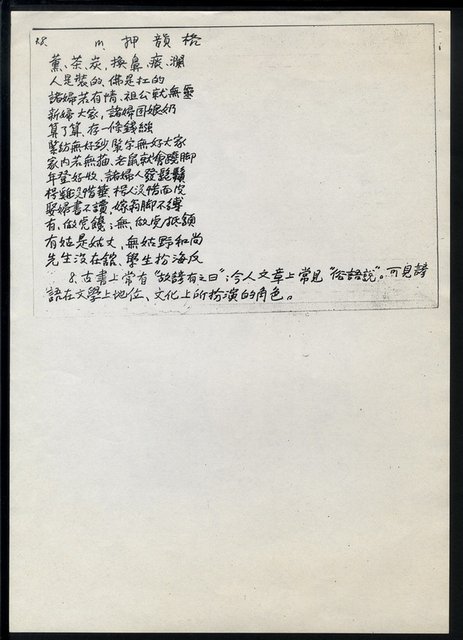 m 押韻格
薰、茶炭、換鼻痕、瀾
人是裝的、佛是扛的
諸婦若有情、祖公就無靈
新婦大家,諸婦囝娘奶
算了算、存一條錢
緊紡無好紗,緊字無好大家
家內若無貓、老鼠就會蹺脚
年登好收、諸婦人發鬍鬚
人沒惜面皮
娶婦書不讀、嫁脚不縛
有、做兜、無、做兜抵額
有姑是姑丈、無姑野和尚
先生沒在館、學生拾海反
8、古書上常有“故諺有之曰”;今人文章上常見“俗語說”。可見諺
語在文學上地位、文化上所扮演的角色。